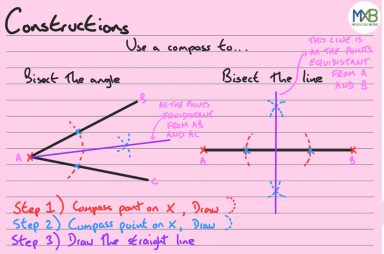 Constructions
MXB
Use a compass to...
THIS LINE IS
All THE POINTS
EQUIDISTANT
FROM A
AND B
Bisect the angle
Bisect the line
B
All THE POINTS
EQUIDISTANT
FROM AB
AND AC
A
C
A
B
Step 1) Compass point on X, Draw
Step 2) Compass point on X, Draw
Step 3) Draw the straight line